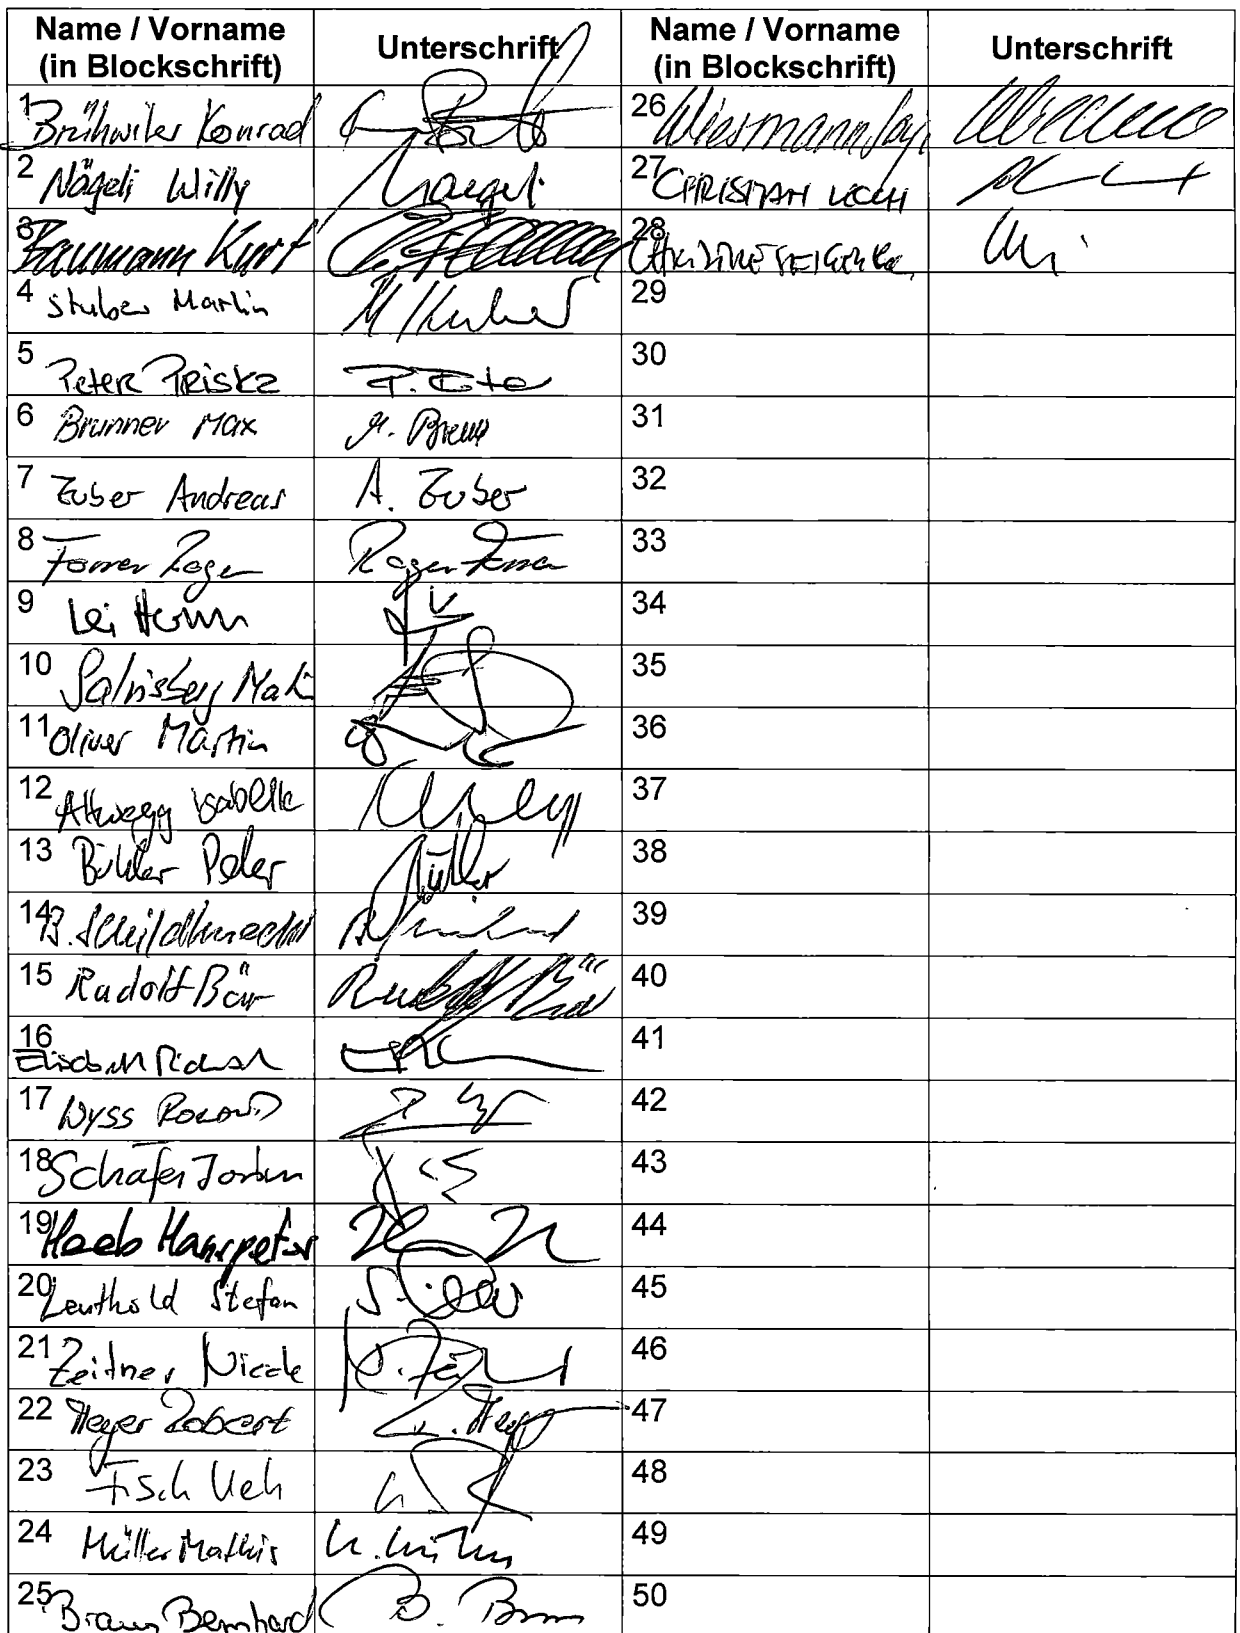 Name / Vorname (in Blockschrift) Unterschrift Name / Vorname (in Blockschrift) Unterschrift
1 Brühwiler Konrad 26 Wiesmann
2 Nägeli Willy Naegeli 27 CHRISTIAN KOCH
3 Baumann Kurt 28
4 Stuber Martin M Stuber 29
5 Peter Priska P. Peter 30
6 Brunner Max M. Brunner 31
7 Zuber Andreas A. Zuber 32
8 Forrer Roger Roger Forrer 33
9 Lei Hermann 34
10 Salvisberg Martin 35
11 Oliver Martin 36
12 Altwegg Isabelle 37
13 Bühler Peter Bühler 38
14 B. Schildknecht 39
15 Rudolf Bär Rudolf Bär 40
16 41
17 Wyss Roland 42
18 Schäfer 43
19 Heeb Hanspeter 44
20 Leuthold Stefan 45
21 Zeitner Nicole N. Zeitner 46
22 Meyer Robert R. Meyer 47
23 Fisch Ueli 48
24 Müller Mathis 49
25 Braun Bernhard B. Braun 50